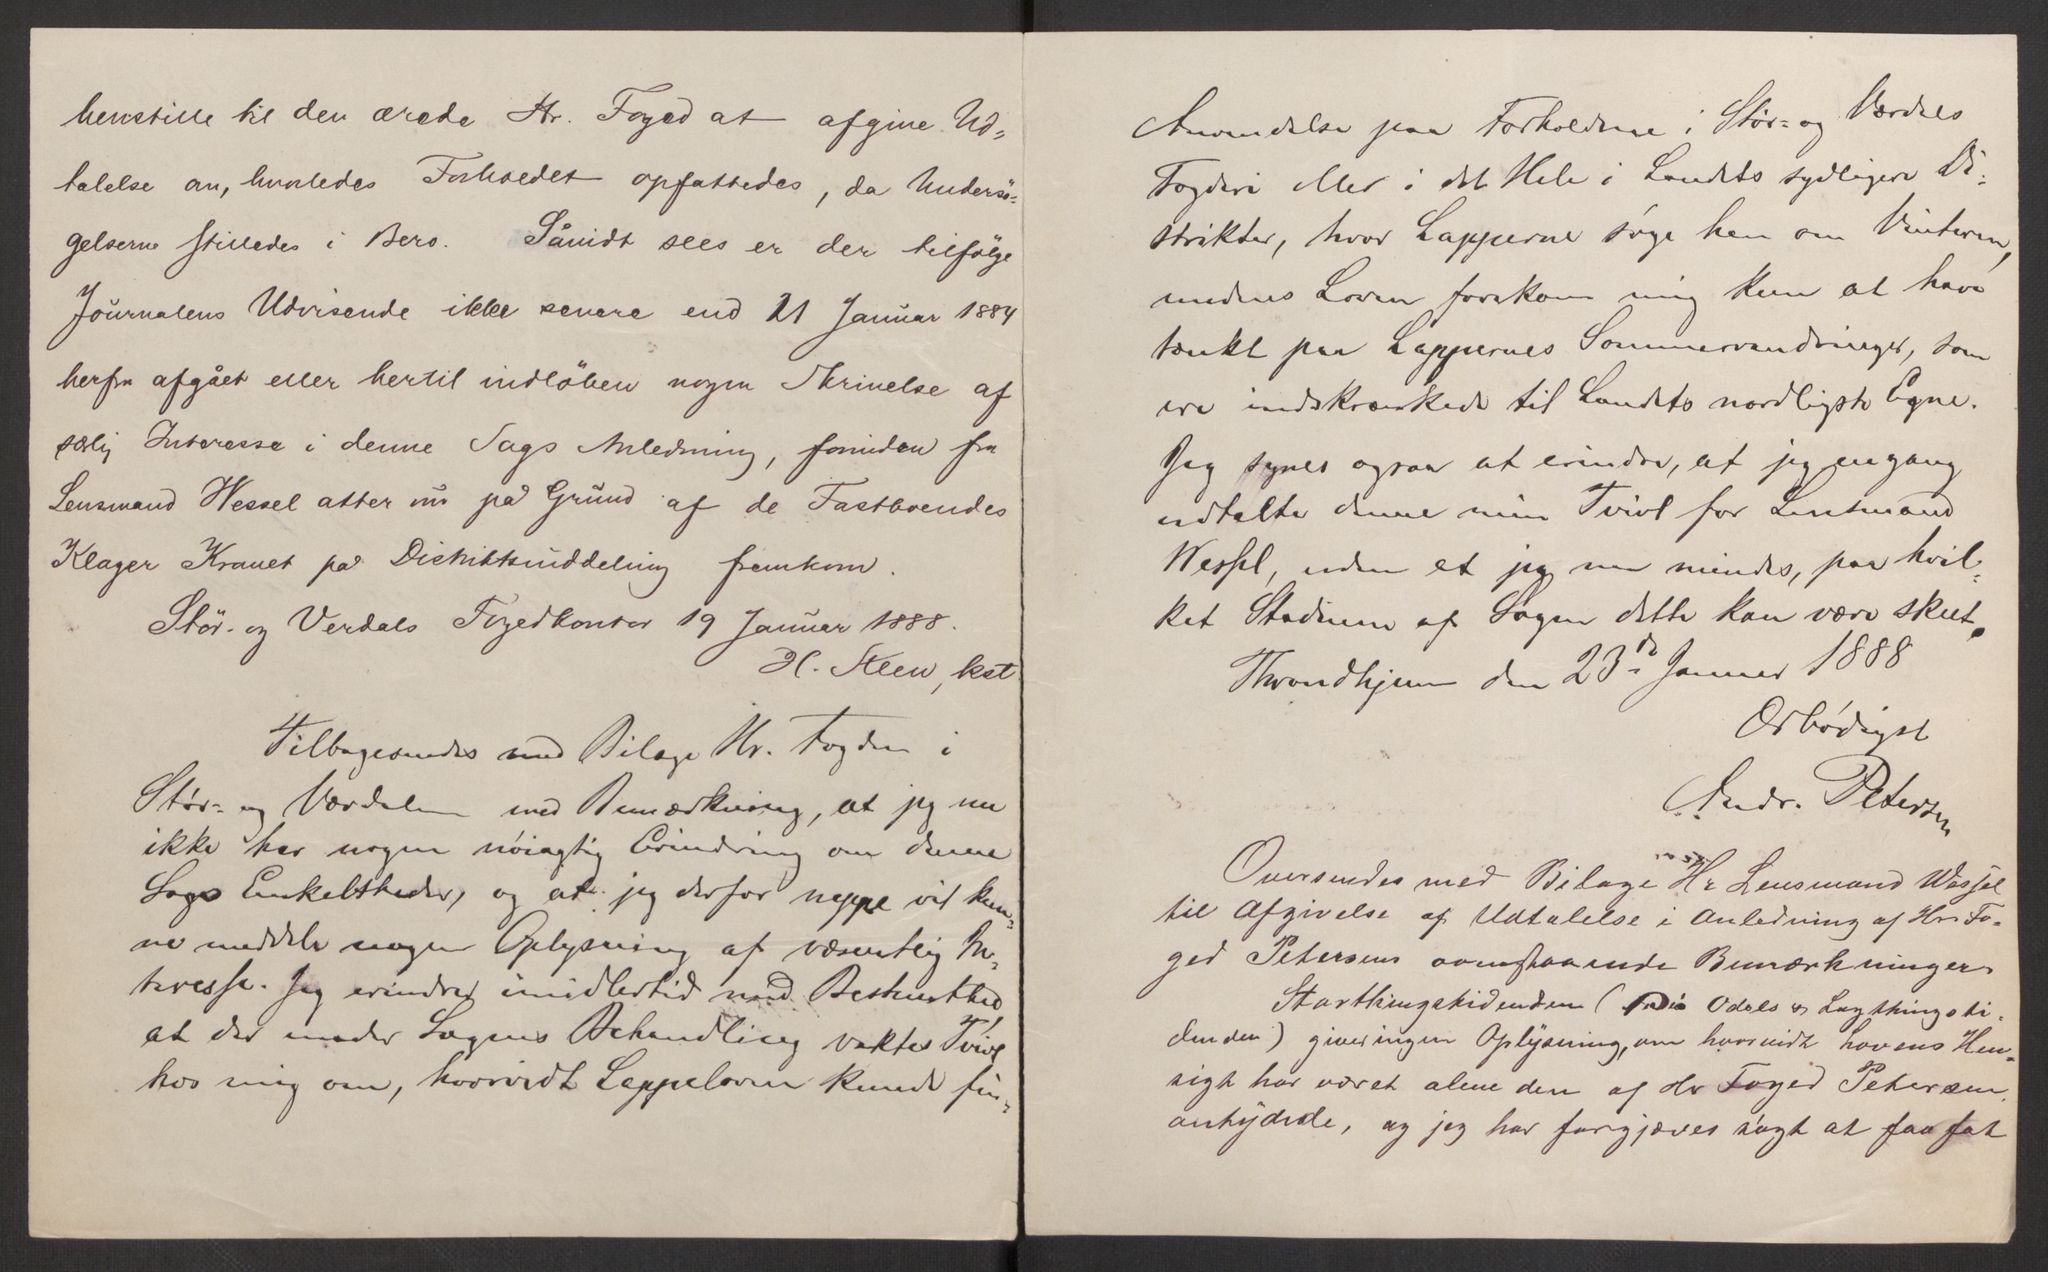 henstille til den ærede Hr. Foged at afgive Ud-
talelse om, hvorledes Forholdet opfattedes, da Undersø-
gelserne stilledes i Bero. Såvidt sees er der tilfølge
Journalens Udvisende ikke senere end 21 Januar 1884
herfra afgået eller hertil indløben nogen Skrivelse af
særlig Interesse i denne Sags Anledning, forinden fra
Lensmand Wessel atter nu på Grund af de Fastboendes
Klager Kravet på Distriktsinddeling fremkom.
Stør- og Verdals Fogedkontor 19 Januar 1888.
H. Steen, kst
Tilbagesendes med Bilage Hr. Fogden i
Stør- og Værdalen med Bemærkning, at jeg nu
ikke har nogen nøiagtig Erindring om denne
Sags Enkeltheder, og at jeg derfor neppe vil kun-
ne meddele nogen Oplysning af væsentlig In-
teresse. Jeg erindrer imidlertid med Bestemthed
at der under Sagens Behandling vaktes Tvivl
hos mig om, hvorvidt Lappeloven kunde fin-
Anvendelse paa Forholdene i Stør- og Værdals
Fogderi eller i det Hele i Landets sydligere Di-
strikter, hvor Lapperne søge hen om Vinteren,
medens Loven forekom mig kun at have
tænkt paa Lappernes Sommervandringer, som
ere indskrænkede til Landets nordligste Egne.
Jeg synes ogsaa at erindre, at jeg engang
udtalte denne min Tvivl for Lensmand
Wessel, uden at jeg nu mindes, paa hvil-
ket Stadium af Sagen dette kan være skeet.
Throndhjem den 23de Januar 1888
Ærbødigst
Andr. Petersen
Oversendes med Bilage Hr Lensmand Wessel
til Afgivelse af Udtalelse i Anledning af Hr. Fo-
ged Petersens ovenstaaende Bemærkninger.
Storthingstidenden ( Odels & Lagthingsti-
denden) giver ingen Oplysning, om hvorvidt Lovens Hen-
sigt har været alene den af Hr Foged Petersen
antydede, og jeg har forgjæves søgt at faa fat